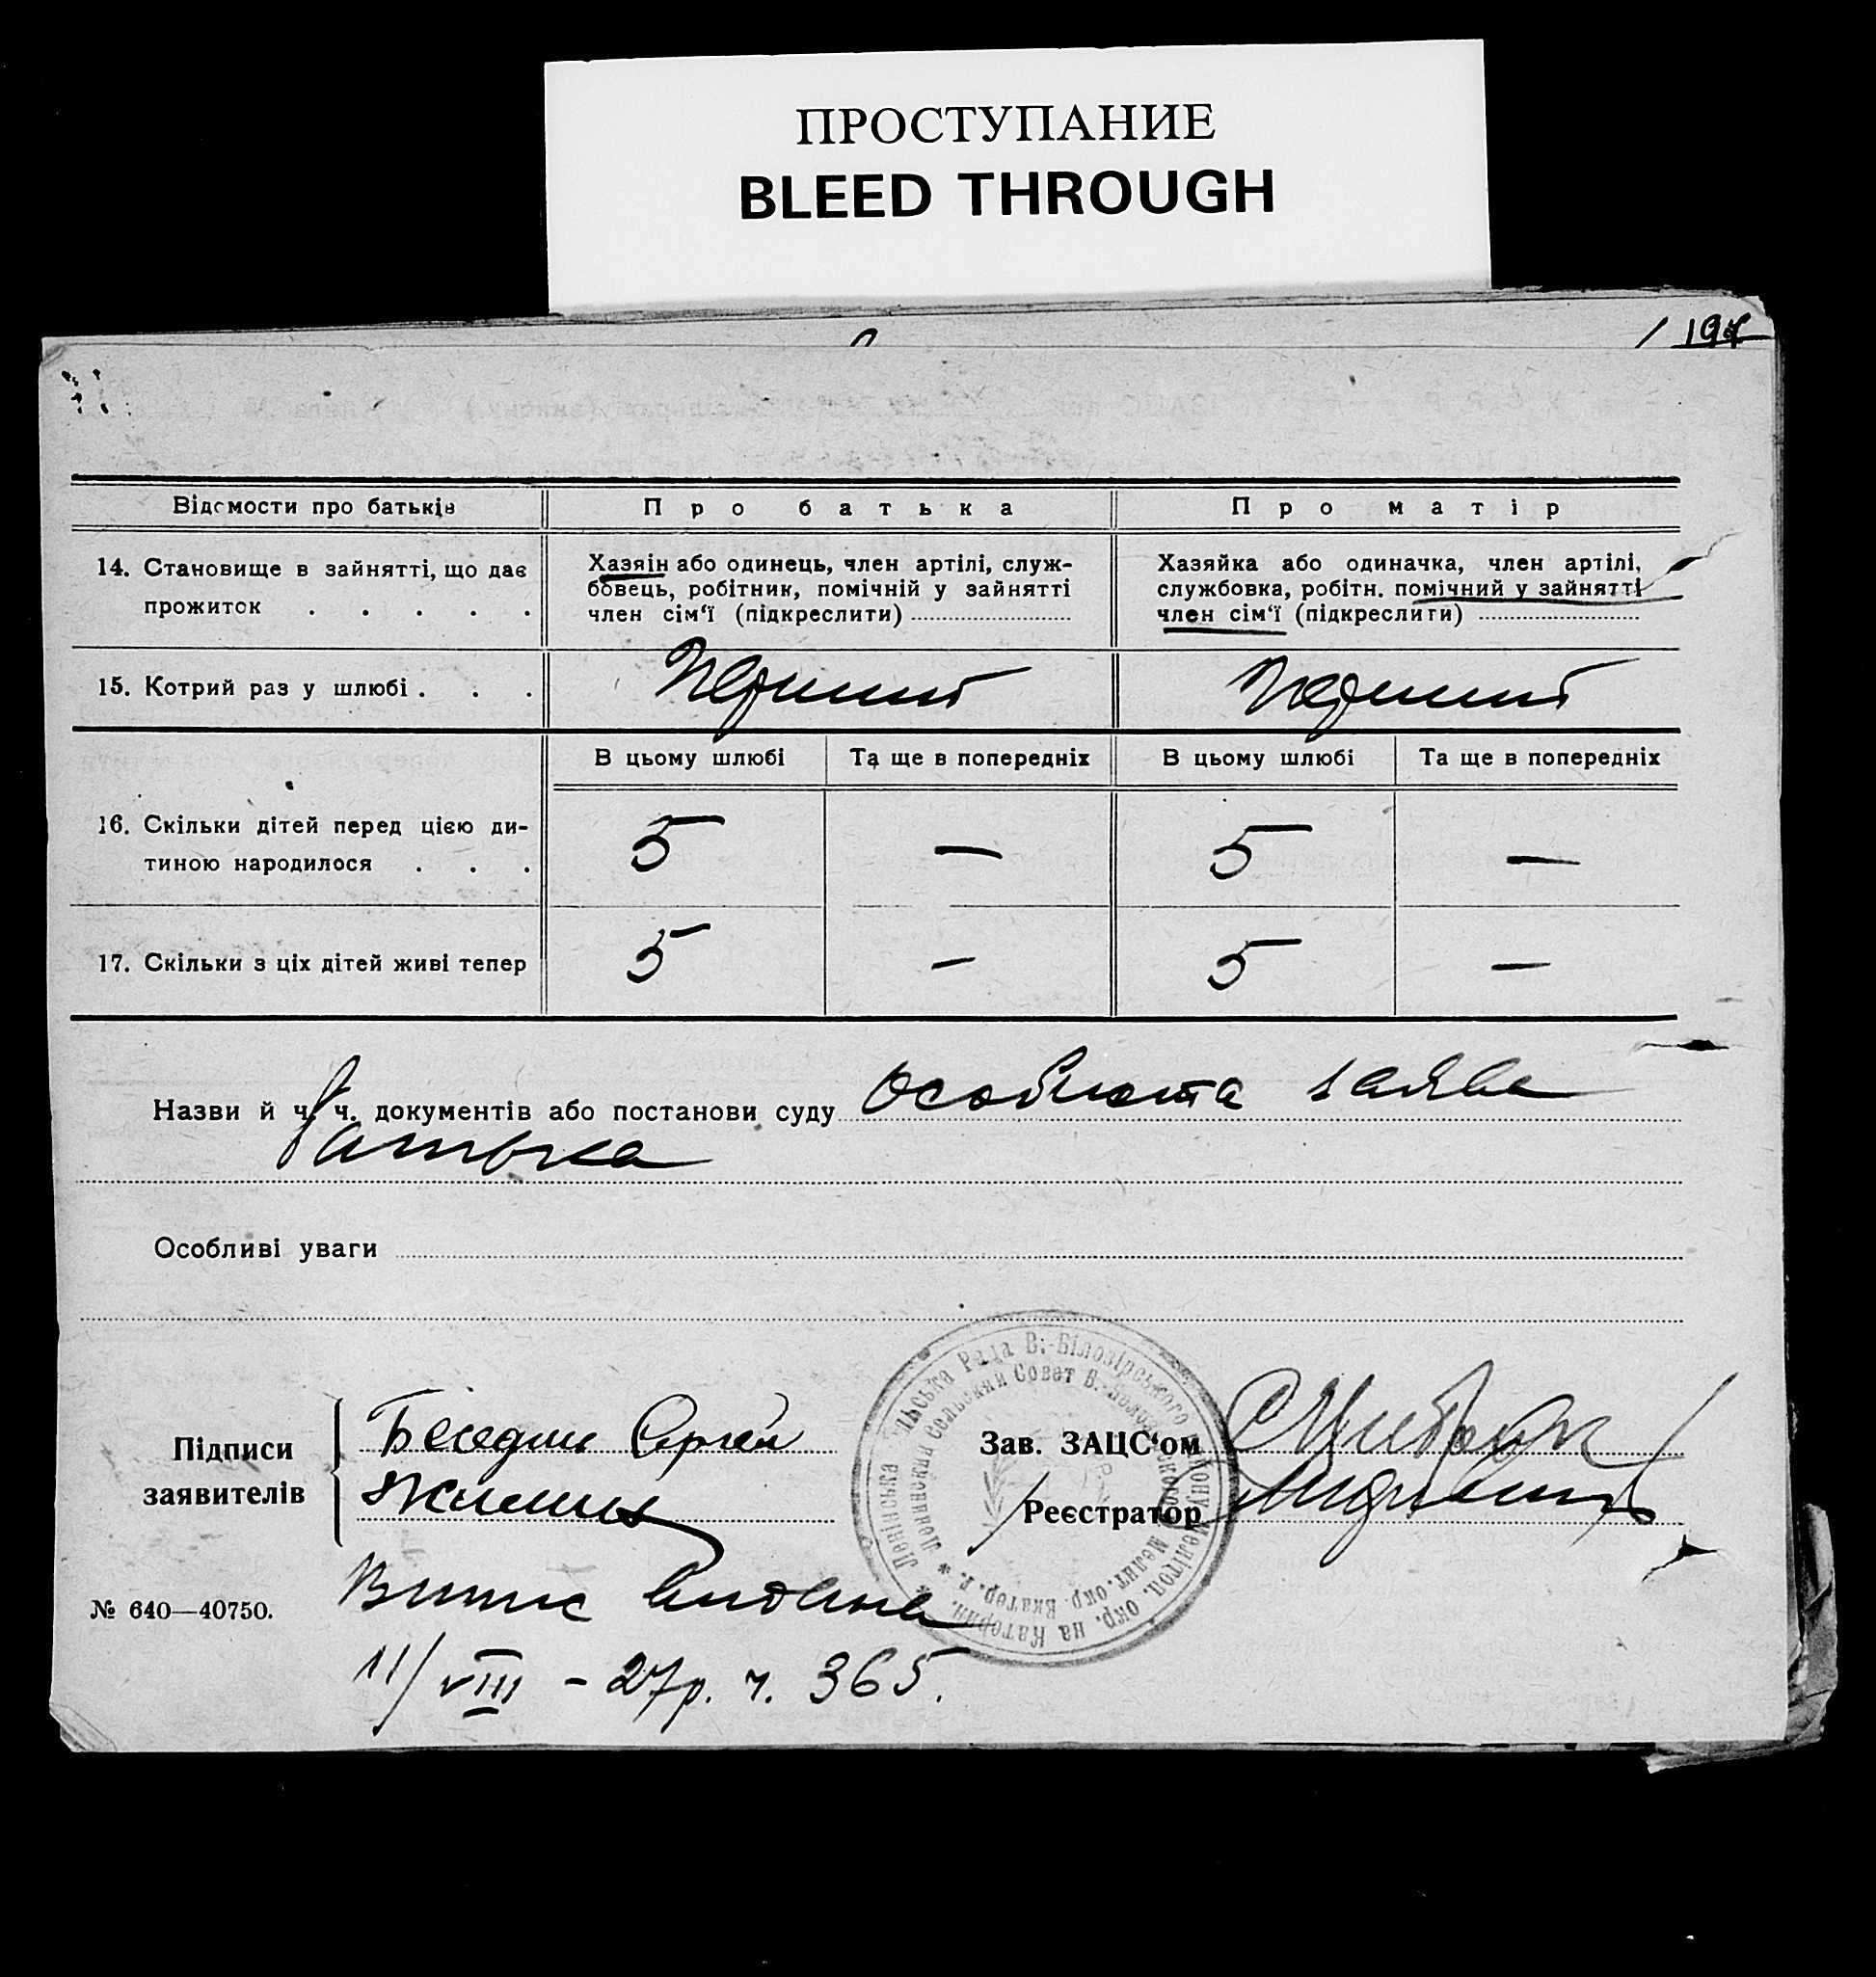 ПРОСТУПАНИЕ
BLEED THROUGH
Відомости про батьків
Про батька
Про матір
14. Становище в зайнятті, що дає
прожиток . . . . .
Хазяін або одинець, член артілі, служ-
бовець, робітник, помічній у зайнятті
член сім‘ї (підкреслити)
Хазяйка або одиначка, член артілі,
службовка, робітн. помічний у зайнятті
член сім‘ї (підкреслити)
15. Котрий раз у шлюбі . . .
Перший
Перший
В цьому шлюбі
Та ще в попередніх
В цьому шлюбі
Та ще в попередніх
16. Скільки дітей перед цією ди-
тиною народилося . . .
5
—
5
—
17. Скільки з ціх дітей живі тепер
5
—
5
—
Назви й ч. ч. документів або постанови суду особиста заява
батька
Особливі уваги
Підписи
заявителів
Беседин Сергей
Зав. ЗАЦС‘ом
Реєстратор
Ленінська Рада В.-Білозірського Мелітоп. окр. на Катерин.
Ленинский Сельский Совет В.-Белозерского Мелит. окр. Екатер. г.
№ 640—40750.
Випис видана
11/VIII – 27р. ч. 365.